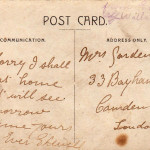 POST CARD.
COMMUNICATION.
ADDRESS ONLY.
orry I shall
t home
I will see
orrow
me yours
Ever
Mrs Gorden
33 Bayham
Camden
London